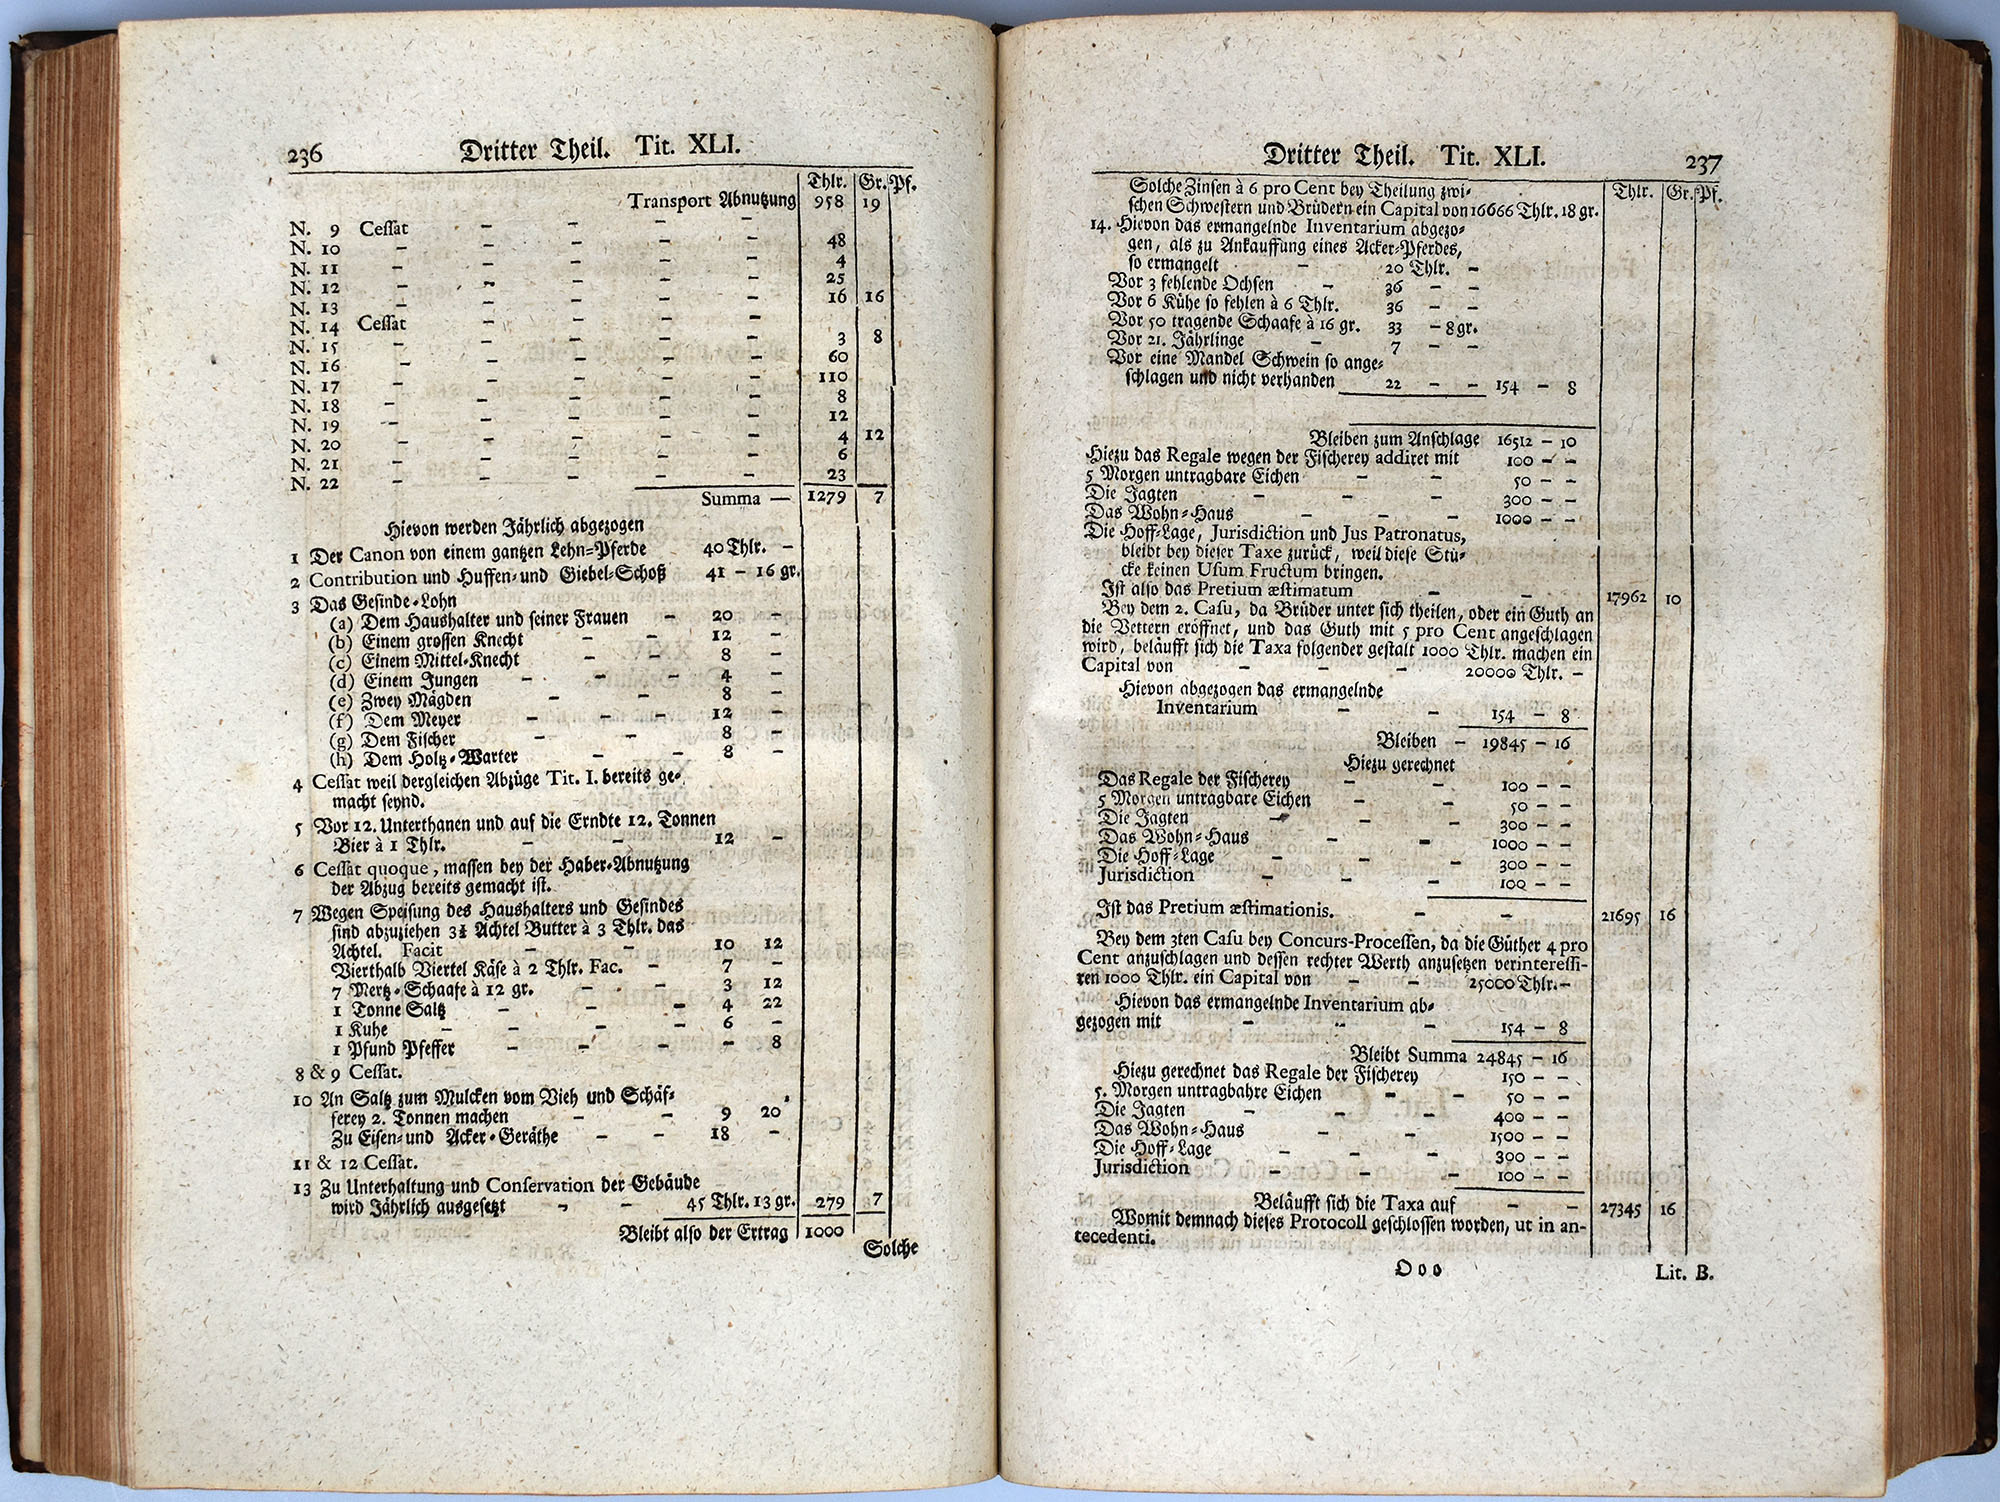 236 Dritter Theil. Tit. XLI.
Thlr. Gr. Pf.
Transport Abnutzung 958 19
N. 9 Cessat – – – –
N. 10 – – – – – 48
N. 11 – – – – – 4
N. 12 – – – – – 25
N. 13 – – – – 16 16
N. 14 Cessat – – – –
N. 15 – – – – 3 8
N. 16 – – – – – 60
N. 17 – – – – 110
N. 18 – – – – – 8
N. 19 – – – – 12
N. 20 – – – – – 4 12
N. 21 – – – – – 6
N. 22 – – – – – 23
Summa — 1279 7
Hievon werden Jährlich abgezogen
1 Der Canon von einem gantzen Lehn=Pferde 40 Thlr. –
2 Contribution und Huffen= und Giebel=Schoß 41 – 16 gr.
3 Das Gesinde=Lohn
(a) Dem Haushalter und seiner Frauen – 20 –
(b) Einem grossen Knecht – – 12 –
(c) Einem Mittel=Knecht – – 8 –
(d) Einem Jungen – – – 4 –
(e) Zwey Mägden – – 8 –
(f) Dem Meyer – – – 12 –
(g) Dem Fischer – – 8 –
(h) Dem Holtz=Warter – – 8 –
4 Cessat weil dergleichen Abzüge Tit. I. bereits ge=
macht seynd.
5 Vor 12. Unterthanen und auf die Erndte 12. Tonnen
Bier à 1 Thlr. – – 12 –
6 Cessat quoque, massen bey der Haber=Abnutzung
der Abzug bereits gemacht ist.
7 Wegen Speisung des Haushalters und Gesindes
sind abzuziehen 3½ Achtel Butter à 3 Thlr. das
Achtel. Facit – – 10 12
Vierthalb Viertel Käse à 2 Thlr. Fac. – 7 –
7 Mertz=Schaafe à 12 gr. – – 3 12
1 Tonne Saltz – – – 4 22
1 Kuhe – – – – 6 –
1 Pfund Pfeffer – – – – 8
8 & 9 Cessat.
10 An Saltz zum Mulcken vom Vieh und Schäf=
ferey 2. Tonnen machen – – 9 20
Zu Eisen= und Acker=Geräthe – – 18 –
11 & 12 Cessat.
13 Zu Unterhaltung und Conservation der Gebäude
wird Jährlich ausgesetzt – – 45 Thlr. 13 gr. 279 7
Bleibt also der Ertrag 1000
Solche
Dritter Theil. Tit. XLI. 237
Thlr. Gr. Pf.
Solche Zinsen à 6 pro Cent bey Theilung zwi=
schen Schwestern und Brüdern ein Capital von 16666 Thlr. 18 gr.
14. Hievon das ermangelnde Inventarium abgezo=
gen, als zu Ankauffung eines Acker=Pferdes,
so ermangelt – 20 Thlr. –
Vor 3 fehlende Ochsen – 36 – –
Vor 6 Kühe so fehlen à 6 Thlr. 36 – –
Vor 50 tragende Schaafe à 16 gr. 33 – 8 gr.
Vor 21. Jährlinge – 7 – –
Vor eine Mandel Schwein so ange=
schlagen und nicht verhanden 22 – – 154 – 8
Bleiben zum Anschlage 16512 – 10
Hiezu das Regale wegen der Fischerey addiret mit 100 – –
5 Morgen untragbare Eichen – – 50 – –
Die Jagten – – – 300 – –
Das Wohn=Haus – – – 1000 – –
Die Hoff=Lage, Jurisdiction und Jus Patronatus,
bleibt bey dieser Taxe zurück, weil diese Stü=
cke keinen Usum Fructum bringen.
Ist also das Pretium æstimatum – – 17962 10
Bey dem 2. Casu, da Brüder unter sich theilen, oder ein Guth an
die Vettern eröffnet, und das Guth mit 5 pro Cent angeschlagen
wird, beläufft sich die Taxa folgender gestalt 1000 Thlr. machen ein
Capital von – – – 20000 Thlr. –
Hievon abgezogen das ermangelnde
Inventarium – – 154 – 8
Bleiben – 19845 – 16
Hiezu gerechnet
Das Regale der Fischerey – – 100 – –
5 Morgen untragbare Eichen – – 50 – –
Die Jagten – – – 300 – –
Das Wohn=Haus – – 1000 – –
Die Hoff=Lage – – – 300 – –
Jurisdiction – – – 100 – –
Ist das Pretium æstimationis. – – 21695 16
Bey dem 3ten Casu bey Concurs-Processen, da die Güther 4 pro
Cent anzuschlagen und dessen rechter Werth anzusetzen verinteressi-
ren 1000 Thlr. ein Capital von – – 25000 Thlr. –
Hievon das ermangelnde Inventarium ab=
gezogen mit – – – 154 – 8
Bleibt Summa 24845 – 16
Hiezu gerechnet das Regale der Fischerey 150 – –
5. Morgen untragbahre Eichen – – 50 – –
Die Jagten – – – 400 – –
Das Wohn=Haus – – 1500 – –
Die Hoff=Lage – – – 300 – –
Jurisdiction – – – 100 – –
Beläufft sich die Taxa auf – – 27345 16
Womit demnach dieses Protocoll geschlossen worden, ut in an-
tecedenti.
Ooo Lit. B.